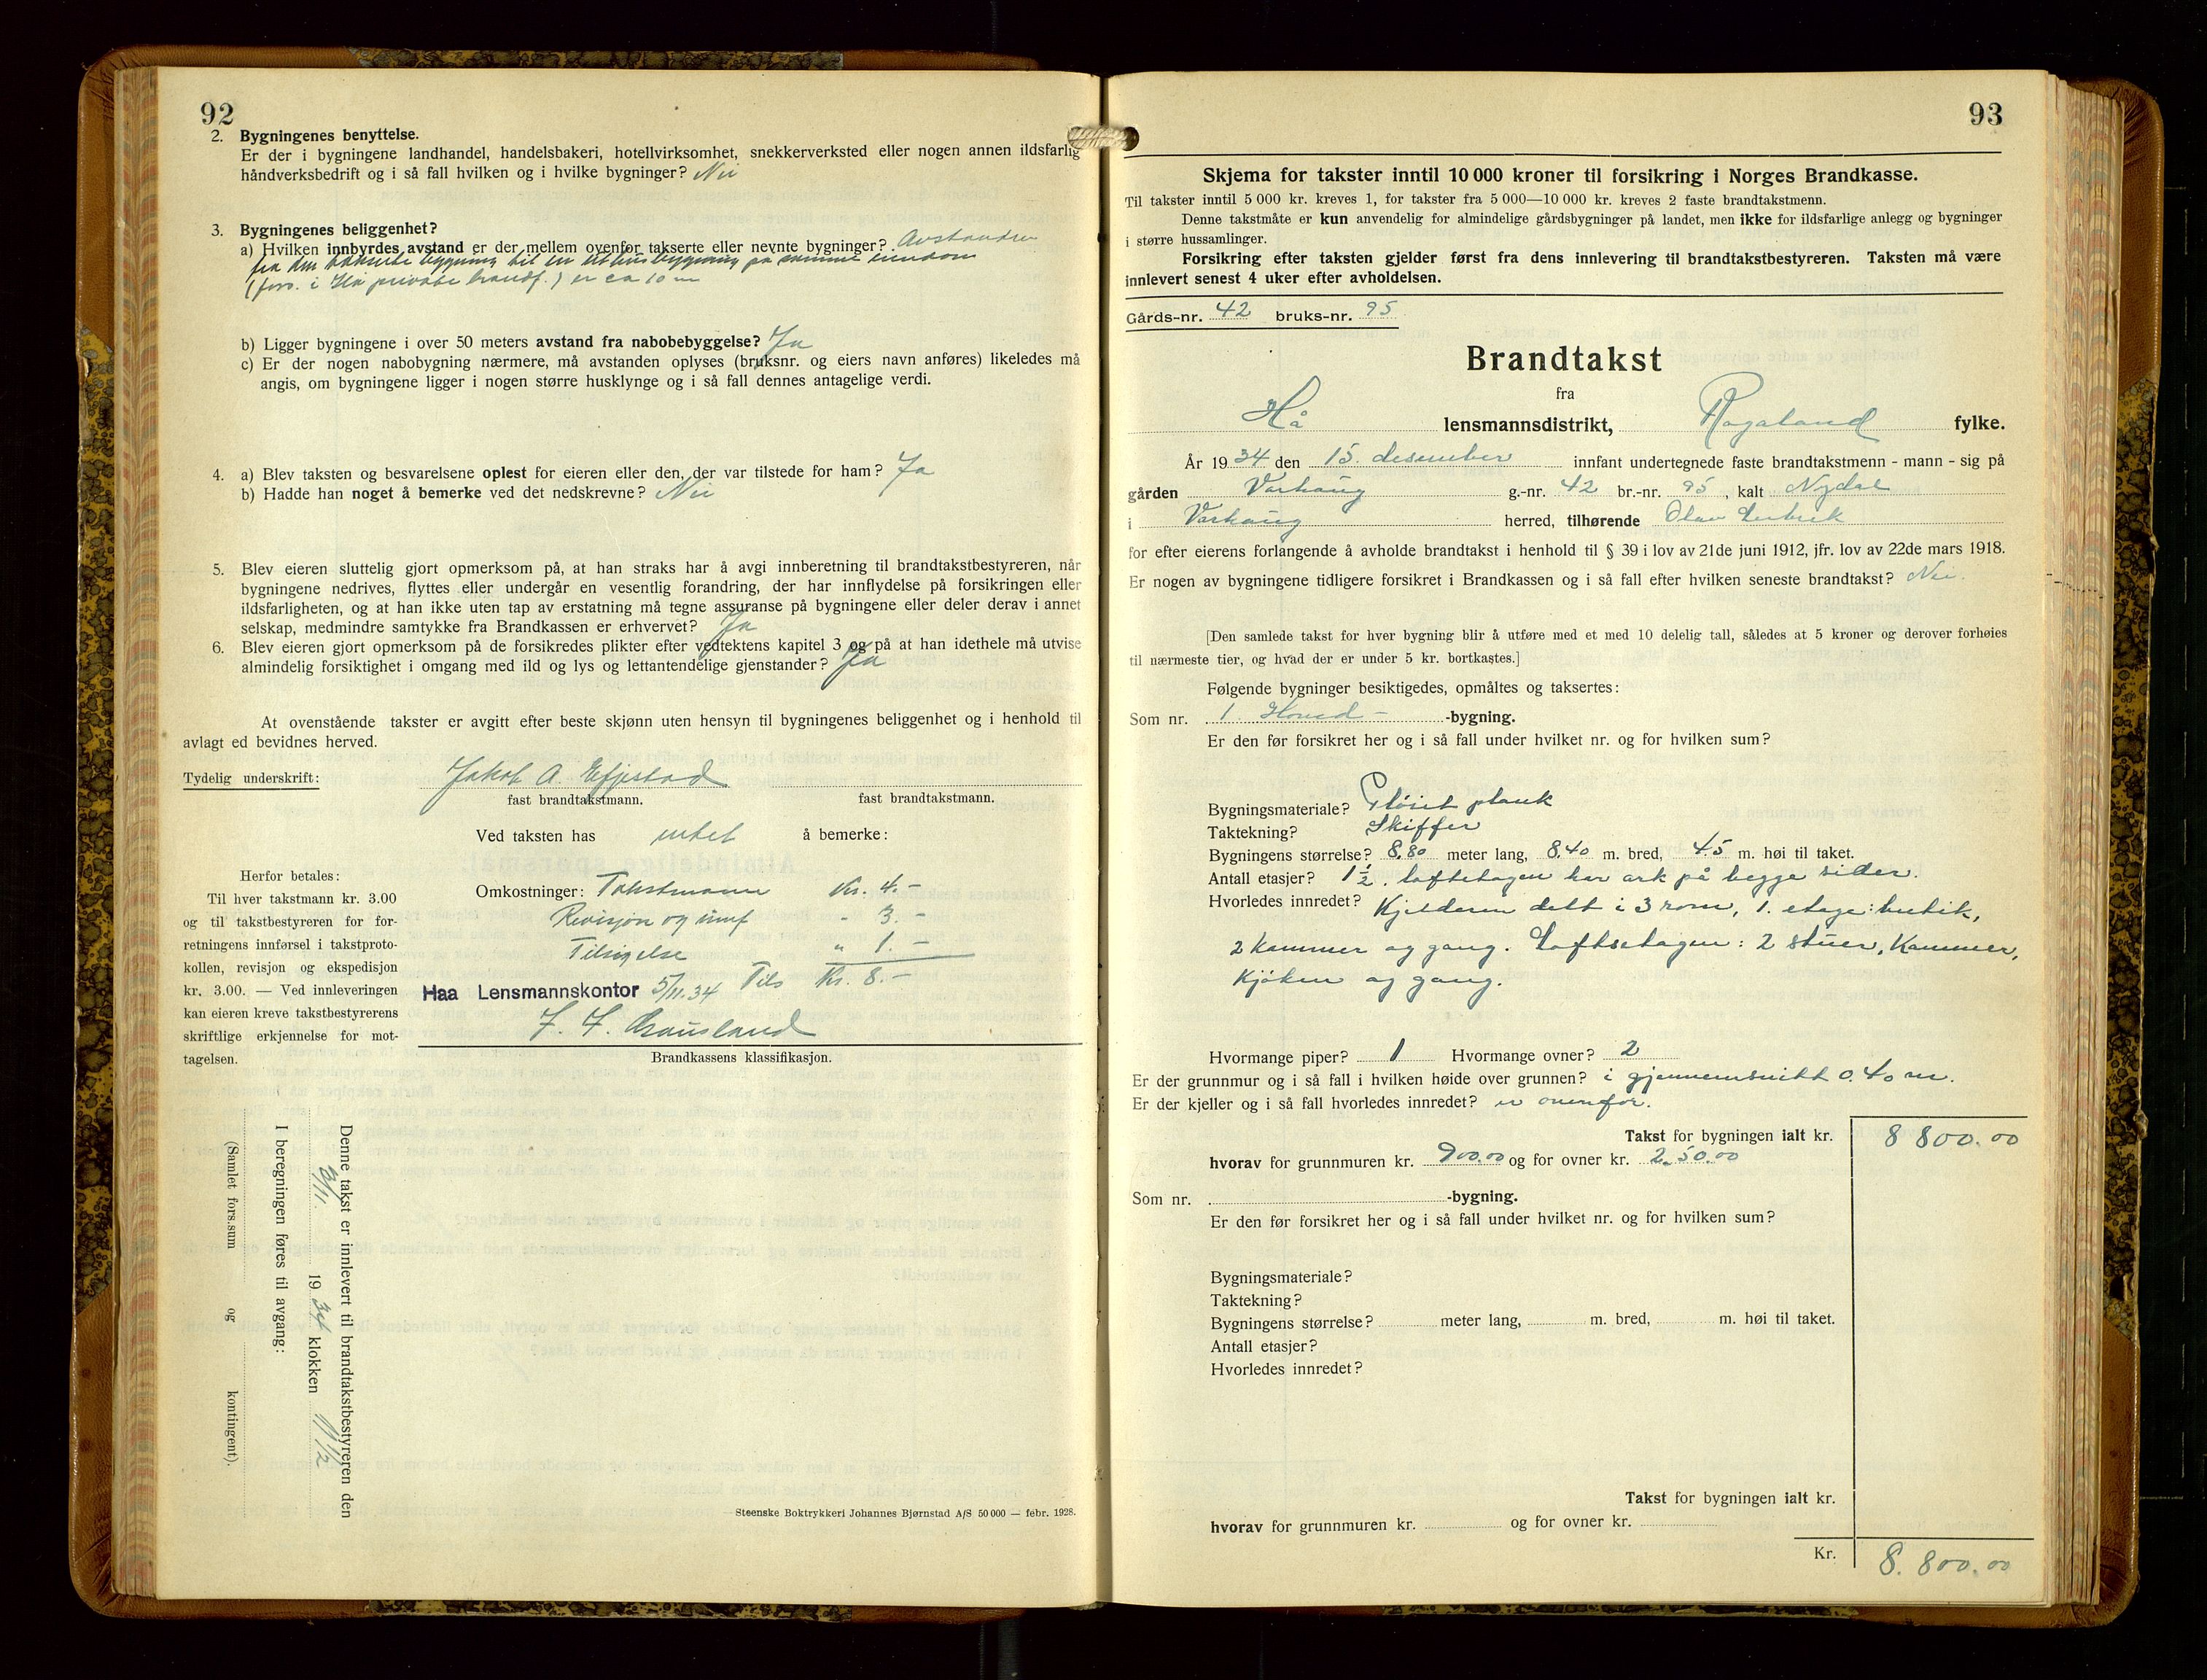 92
2. Bygningenes benyttelse.
Er der i bygningene landhandel, handelsbakeri, hotellvirksomhet, snekkerverksted eller nogen annen ildsfarlig
håndverksbedrift og i så fall hvilken og i hvilke bygninger? Nei
3. Bygningenes beliggenhet?
a) Hvilken innbyrdes avstand er der mellem ovenfor takserte eller nevnte bygninger? Avstanden
fra den takserte bygning til en uthusbygning på samme eiendom
(fors. i Hå private brandf.) er ca 10 m
b) Ligger bygningene i over 50 meters avstand fra nabobebyggelse? Ja
c) Er der nogen nabobygning nærmere, må avstanden oplyses (bruksnr. og eiers navn anføres) likeledes må
angis, om bygningene ligger i nogen større husklynge og i så fall dennes antagelige verdi.
4. a) Blev taksten og besvarelsene oplest for eieren eller den, der var tilstede for ham? Ja
b) Hadde han noget å bemerke ved det nedskrevne? Nei
5. Blev eieren sluttelig gjort opmerksom på, at han straks har å avgi innberetning til brandtakstbestyreren, når
bygningene nedrives, flyttes eller undergår en vesentlig forandring, der har innflydelse på forsikringen eller
ildsfarligheten, og at han ikke uten tap av erstatning må tegne assuranse på bygningene eller deler derav i annet
selskap, medmindre samtykke fra Brandkassen er erhvervet? Ja
6. Blev eieren gjort opmerksom på de forsikredes plikter efter vedtektens kapitel 3 og på at han idethele må utvise
almindelig forsiktighet i omgang med ild og lys og lettantendelige gjenstander? Ja
At ovenstående takster er avgitt efter beste skjønn uten hensyn til bygningenes beliggenhet og i henhold til
avlagt ed bevidnes herved.
Tydelig underskrift: Jakob A. Efjestad
fast brandtakstmann. fast brandtakstmann.
Ved taksten has intet å bemerke:
Herfor betales:
Til hver takstmann kr. 3.00
og til takstbestyreren for for-
retningens innførsel i takstproto-
kollen, revisjon og ekspedisjon
kr. 3.00. — Ved innleveringen
kan eieren kreve takstbestyrerens
skriftlige erkjennelse for mot-
tagelsen.
Omkostninger: Takstmann Kr. 4.-
Revisjon og innf - 3.-
Tilsigelse " 1.-
Haa Lensmannskontor 5/11.34 Tils Kr. 8.-
Brandkassens klassifikasjon.
Denne takst er innlevert til brandtakstbestyreren den
19 34 klokken 11 1/2
I beregningen føres til avgang:
(Samlet fors.sum og kontingent).
Steenske Boktrykkeri Johannes Bjørnstad A/S 50 000 — febr. 1928.
93
Skjema for takster inntil 10 000 kroner til forsikring i Norges Brandkasse.
Til takster inntil 5 000 kr. kreves 1, for takster fra 5 000—10 000 kr. kreves 2 faste brandtakstmenn.
Denne takstmåte er kun anvendelig for almindelige gårdsbygninger på landet, men ikke for ildsfarlige anlegg og bygninger
i større hussamlinger.
Forsikring efter taksten gjelder først fra dens innlevering til brandtakstbestyreren. Taksten må være
innlevert senest 4 uker efter avholdelsen.
Gårds-nr. 42 bruks-nr. 95
Brandtakst
fra
Hå lensmannsdistrikt, Rogaland fylke.
År 19 34 den 15. desember innfant undertegnede faste brandtakstmenn - mann - sig på
gården Varhaug g.-nr. 42 br.-nr. 95, kalt Nydal
i Varhaug herred, tilhørende Olav
for efter eierens forlangende å avholde brandtakst i henhold til § 39 i lov av 21de juni 1912, jfr. lov av 22de mars 1918.
Er nogen av bygningene tidligere forsikret i Brandkassen og i så fall efter hvilken seneste brandtakst? Nei.
[Den samlede takst for hver bygning blir å utføre med et med 10 delelig tall, således at 5 kroner og derover forhøies
til nærmeste tier, og hvad der er under 5 kr. bortkastes.]
Følgende bygninger besiktigedes, opmåltes og taksertes:
Som nr. 1. Hoved- -bygning.
Er den før forsikret her og i så fall under hvilket nr. og for hvilken sum?
Bygningsmateriale? Pløiet plank
Taktekning? Skiffer
Bygningens størrelse? 8,80 meter lang, 8,40 m. bred, 4.5 m. høi til taket.
Antall etasjer? 1 1/2. loftetagen har ark på begge sider.
Hvorledes innredet? Kjelderen delt i 3 rom, 1. etage: butik,
2 kammer og gang. Loftsetagen: 2 stuer, Kammer,
Kjøken og gang.
Hvormange piper? 1 Hvormange ovner? 2
Er der grunnmur og i så fall i hvilken høide over grunnen? i gjennemsnitt 0.40 m.
Er der kjeller og i så fall hvorledes innredet? er ovenfor.
Takst for bygningen ialt kr. 8 800.00
hvorav for grunnmuren kr. 900.00 og for ovner kr. 250.00
Som nr. -bygning.
Er den før forsikret her og i så fall under hvilket nr. og for hvilken sum?
Bygningsmateriale?
Taktekning?
Bygningens størrelse? meter lang, m. bred, m. høi til taket.
Antall etasjer?
Hvorledes innredet?
Takst for bygningen ialt kr.
hvorav for grunnmuren kr. og for ovner kr.
Kr. 8.800.00